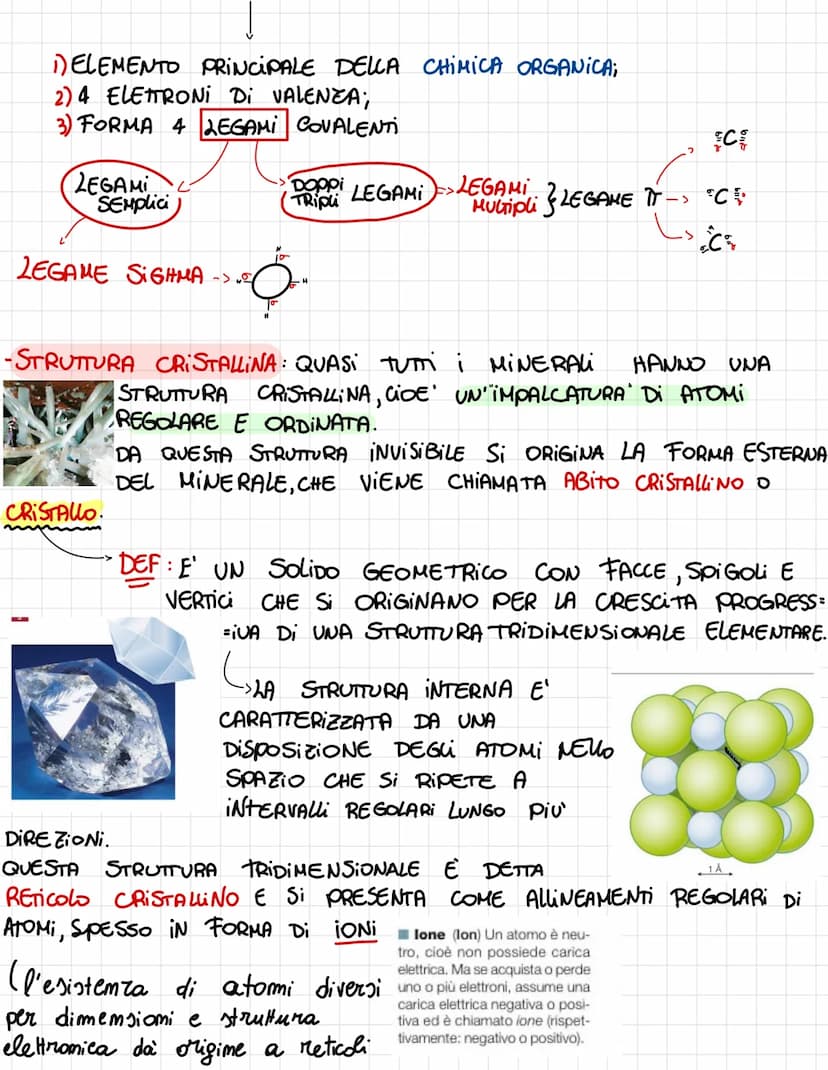 1) ELEMENTO PRINCIPALE DELLA CHIMICA ORGANICA;
2) 4 ELETTRONI DI VALENZA;
3) FORMA 4 LEGAMI COVALENTI
LEGAMI SEMPLICI
DOPPI TRIPLI LEGAMI => LEGAMI MULTIPLI } LEGAME π ->
C
C
C
LEGAME SIGHMA ->
H
σ
H
σ
σ
H
σ
H
- STRUTTURA CRISTALLINA: QUASI TUTTI i MINERALI HANNO UNA
STRUTTURA CRISTALLINA, CIOE' UN'"IMPALCATURA" DI ATOMI
REGOLARE E ORDINATA.
DA QUESTA STRUTTURA INVISIBILE SI ORIGINA LA FORMA ESTERNA
DEL MINERALE, CHE VIENE CHIAMATA ABITO CRISTALLINO O
CRISTALLO.
DEF: E' UN SOLIDO GEOMETRICO CON FACCE, SPIGOLI E
VERTICI CHE SI ORIGINANO PER LA CRESCITA PROGRESS=
=IVA DI UNA STRUTTURA TRIDIMENSIONALE ELEMENTARE.
->LA STRUTTURA INTERNA E'
CARATTERIZZATA DA UNA
DISPOSIZIONE DEGLI ATOMI NELLO
SPAZIO CHE SI RIPETE A
INTERVALLI REGOLARI LUNGO PIU'
DIREZIONI.
QUESTA STRUTTURA TRIDIMENSIONALE È DETTA
RETICOLO CRISTALLINO E SI PRESENTA COME ALLINEAMENTI REGOLARI DI
ATOMI, SPESSO IN FORMA DI IONI
1 Å
Ione (Ion) Un atomo è neu-
tro, cioè non possiede carica
elettrica. Ma se acquista o perde
uno o più elettroni, assume una
carica elettrica negativa o posi-
tiva ed è chiamato ione (rispet-
tivamente: negativo o positivo).
(l'esistenza di atomi diversi
per dimensioni e struttura
elettronica dà origine a reticoli